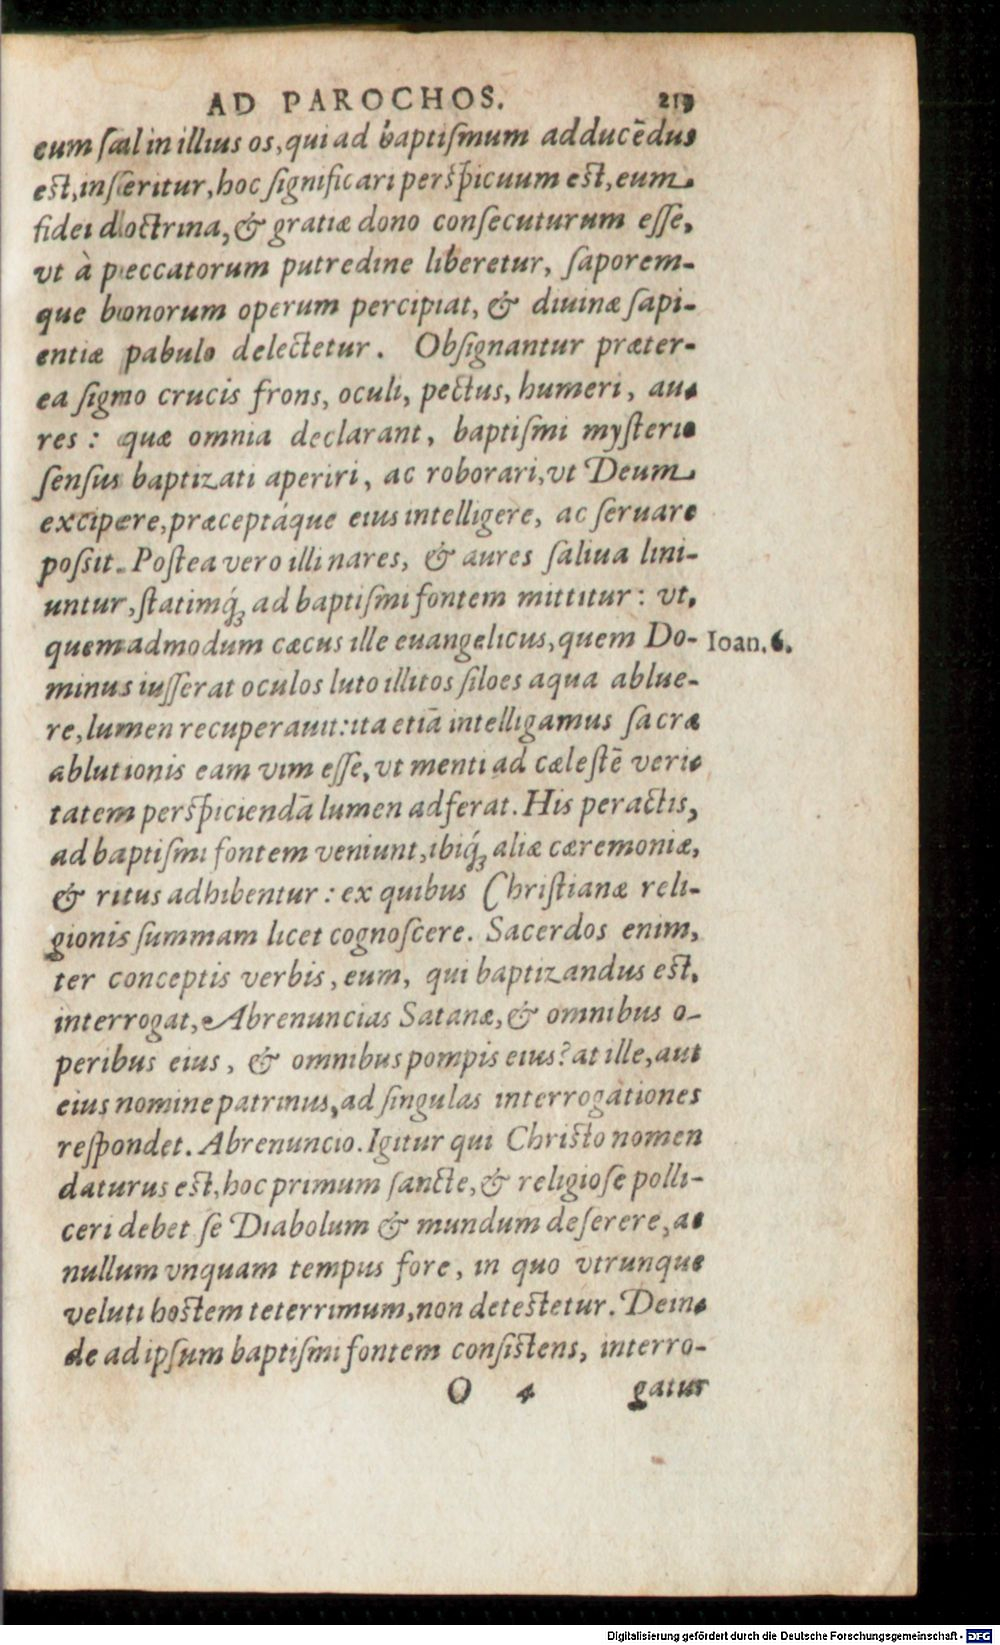 AD PAROCHOS. 215
eum sal in illius os, qui ad baptiſmum adducẽdus
eſt, inſeritur, hoc ſignificari perſpicuum eſt, eum
fidei doctrina, & gratiæ dono conſecuturum eſſe,
vt à peccatorum putredine liberetur, ſaporem-
que bonorum operum percipiat, & diuinæ ſapi-
entiæ pabulo delectetur. Obſignantur præter-
ea ſigno crucis frons, oculi, pectus, humeri, au-
res: quæ omnia declarant, baptiſmi myſterio
ſenſus baptizati aperiri, ac roborari, vt Deum
excipere, præceptáque eius intelligere, ac ſeruare
poſsit. Poſtea vero illi nares, & aures ſaliua lini-
untur, ſtatimq́; ad baptiſmi fontem mittitur: vt,
quemadmodum cæcus ille euangelicus, quem Do- Ioan. 6.
minus iuſſerat oculos luto illitos ſiloes aqua ablue-
re, lumen recuperauit: ita etiã intelligamus ſacræ
ablutionis eam vim eſſe, vt menti ad cæleſtẽ veri-
tatem perſpiciendã lumen adferat. His peractis,
ad baptiſmi fontem veniunt, ibiq́; aliæ cæremoniæ,
& ritus adhibentur: ex quibus Chriſtianæ reli-
gionis ſummam licet cognoſcere. Sacerdos enim,
ter conceptis verbis, eum, qui baptizandus eſt,
interrogat, Abrenuncias Satanæ, & omnibus o-
peribus eius, & omnibus pompis eius? at ille, aut
eius nomine patrinus, ad ſingulas interrogationes
reſpondet. Abrenuncio. Igitur qui Chriſto nomen
daturus eſt, hoc primum ſancte, & religioſe polli-
ceri debet ſe Diabolum & mundum deſerere, ac
nullum vnquam tempus fore, in quo vtrunque
veluti hoſtem teterrimum, non deteſtetur. Dein-
de ad ipſum baptiſmi fontem conſiſtens, interro-
O 4 gatur
Digitalisierung gefördert durch die Deutsche Forschungsgemeinschaft - DFG